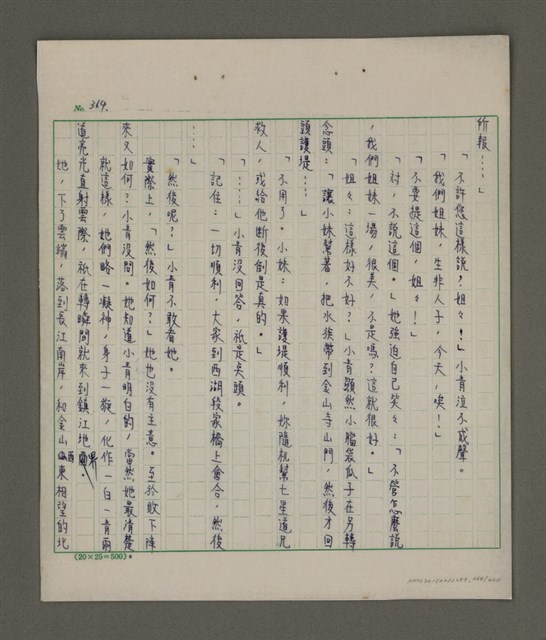 No. 369.
所報……」
「不許您這樣說?姐々!」小青泣不成聲。
「我們姐妹,生非人子,今天,唉!」
「不要提這個,姐々!」
「对,不說這個。」她強迫自己笑々:「不管怎麼說
,我們姐妹一場,很美,不是嗎?這就很好。」
「姐々:這樣好不好?」小青顯然小腦袋瓜子在另轉
念頭:「讓小妹幫著,把水族帶到金山寺山門,然後才回
頭護堤……
「不用了。小妹:如果護堤順利,妳隨机幫七星道兄
救人,或給他斷後倒是真的。」
「……」小青沒回答,祇是点頭。
「記住:一切順利,大家到西湖段家橋上會合,然後
……」
「然後呢?」小青不敢看她。
實際上,「然後如何?」她也沒有主意。至於敗下陣
來又如何?小青沒問。她知道小青明白的,當然她最清楚
就這樣,她們略一凝神,身子一搖,化作一白一青兩
道亮光直射雲際,祇在轉瞬間就來到鎮江地界。
她,下了雲端,落到長江南岸,和金山西東相望的北
(20×25=500)